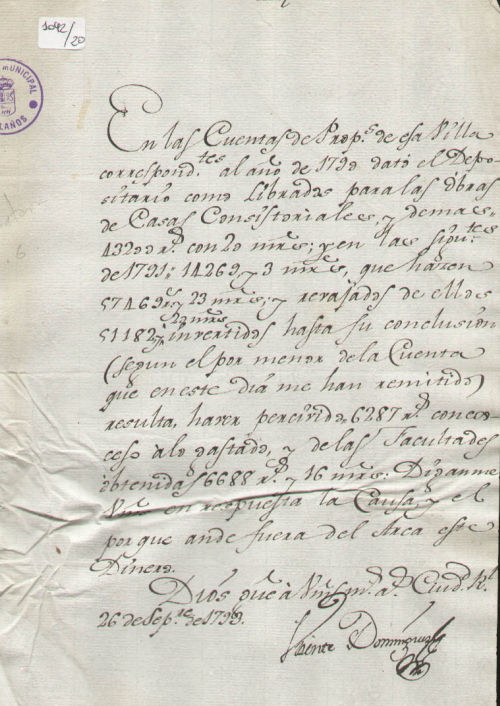 1042/20
MUNICIPAL
LAÑOS
En las Cuentas de Prop.s de esa Villa
correspond.tes al año de 1790 dató el Depo-
sitario como Librados para las obras
de Casas Consistoriales, y demas,
43200 r.s con 20 mrs; y en las sigu.tes
de 1791: 14269 y 3 mrs, que hazen
57469 r.s y 23 mrs; y revajados de ellos
51182 y 23 mrs invertidos hasta su conclusión
(segun el por menor de la Cuenta
que en este dia me han remitido)
resulta, haver percivido 6287 r.s con ex-
ceso a lo gastado, y de las Facultades
obtenidas 6688 r.s y 16 mrs: Diganme
Vms en respuesta la Causa, y el
por que ande fuera del Arca este
Dinero.
Dios gue à Vms m.s a.s Ciud. R.l
26 de Sep.re de 1793.
Vicente Dominguez